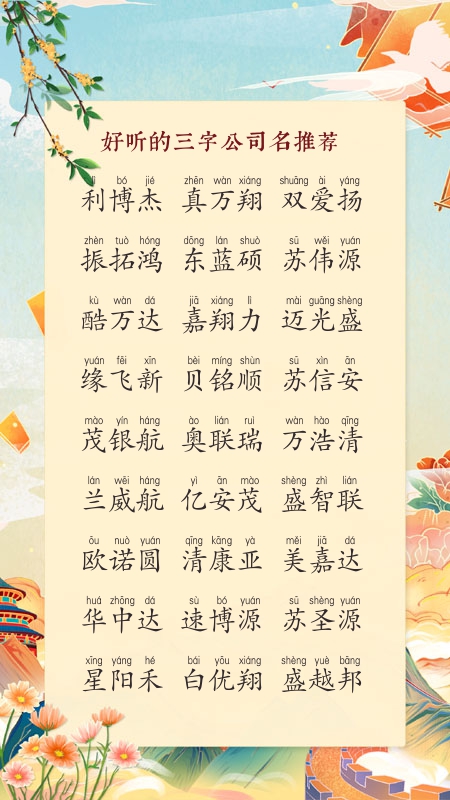 好听的三字公司名推荐
lì bó jié zhēn wàn xiáng shuāng ài yáng
利博杰 真万翔 双爱扬
zhèn tuò hóng dōng lán shuò sū wěi yuán
振拓鸿 东蓝硕 苏伟源
kù wàn dá jiā xiáng lì mài guāng shèng
酷万达 嘉翔力 迈光盛
yuán fēi xīn bèi míng shùn sū xìn ān
缘飞新 贝铭顺 苏信安
mào yín háng ào lián ruì wàn hào qīng
茂银航 奥联瑞 万浩清
lán wēi háng yì ān mào shèng zhì lián
兰威航 亿安茂 盛智联
ōu nuò yuán qīng kāng yà měi jiā dá
欧诺圆 清康亚 美嘉达
huá zhōng dá sù bó yuán sū shèng yuán
华中达 速博源 苏圣源
xīng yáng hé bái yōu xiáng shèng yuè bāng
星阳禾 白优翔 盛越邦